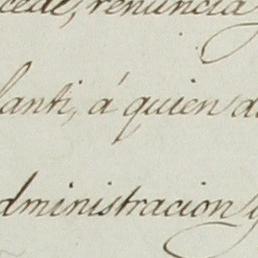 cede, renuncia y
lanti, á quien d
dministracion y